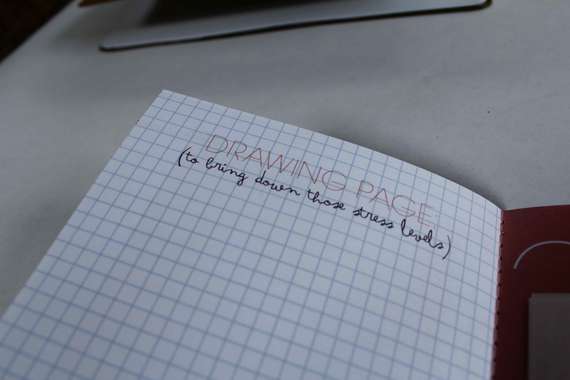 DRAWING PAGE
(to bring down those stress levels)